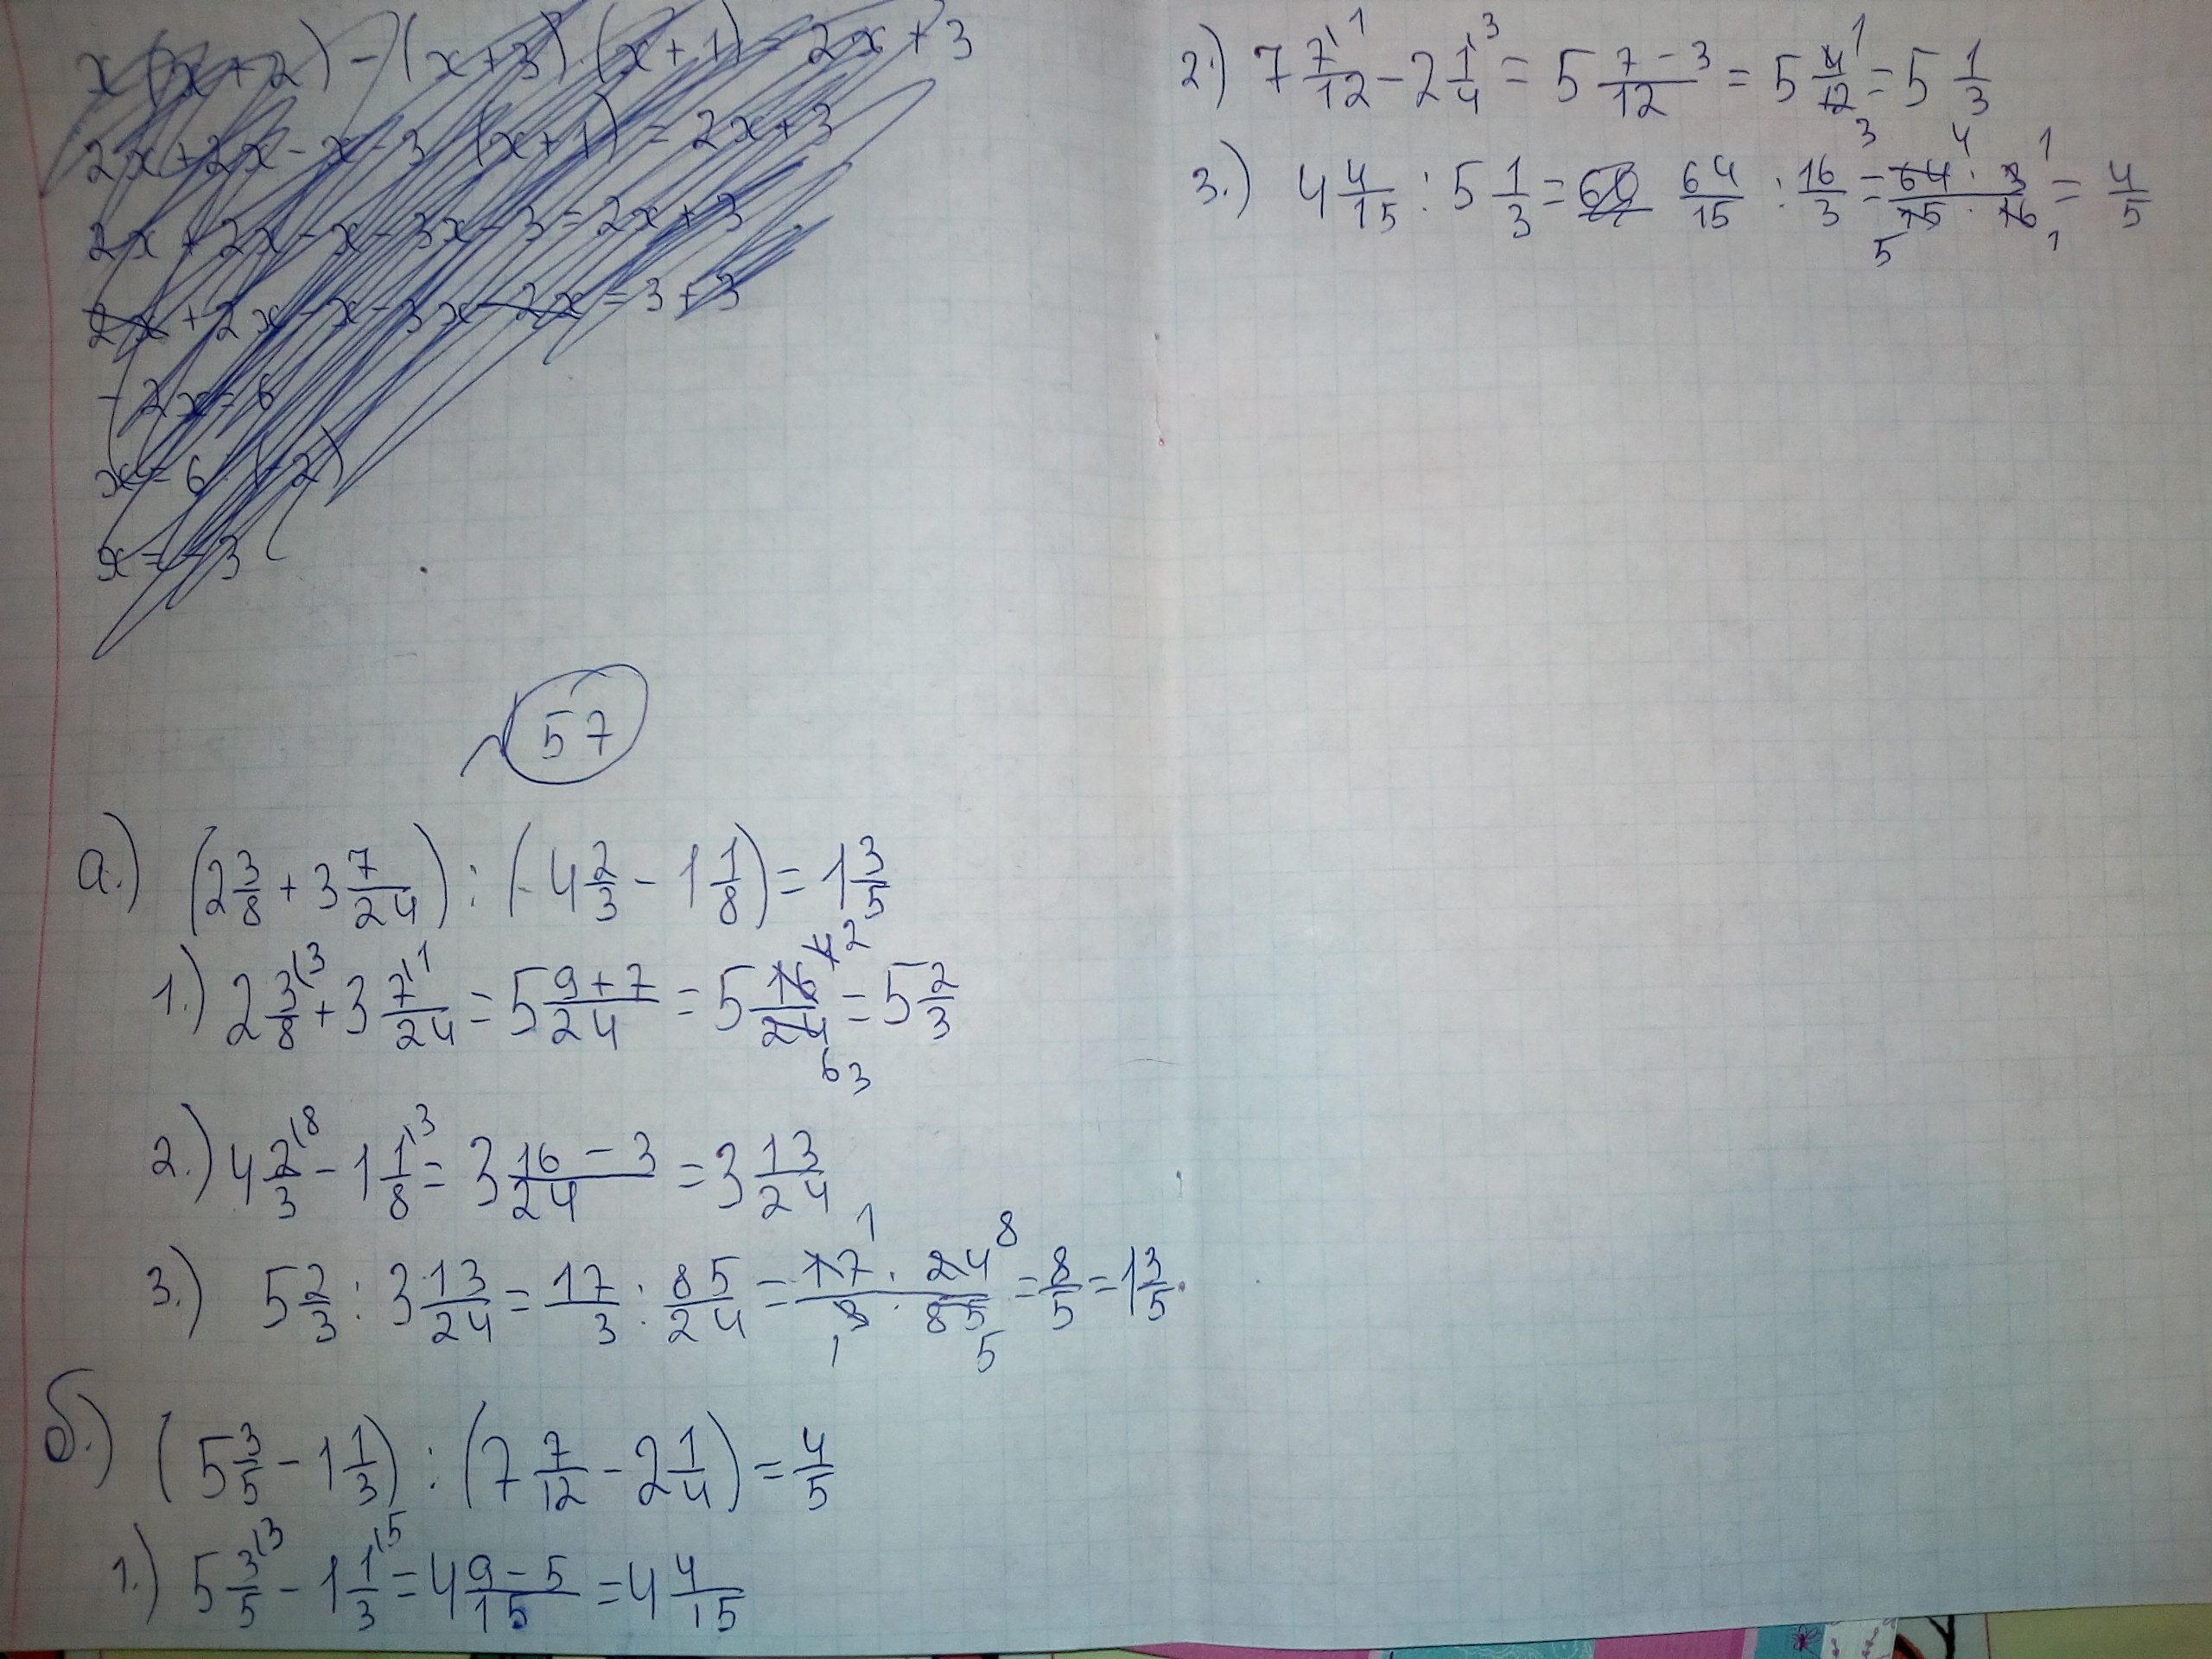 x(x+2) - (x+3)·(x+1) = 2x+3
2x+2x-x-3 (x+1) = 2x+3
2x+2x-x-3x-3=2x+3
2x+2x-x-3x-2x=3+3
-2x=6
x=6:(-2)
x=-3
57
а.) (2 3/8 + 3 7/24) : (4 2/3 - 1 1/8) = 1 3/5
1.) 2 3/8 \3 + 3 7/24 \1 = 5 9+7/24 = 5 16/24 = 5 2/3
2.) 4 2/3 \8 - 1 1/8 \3 = 3 16-3/24 = 3 13/24
3.) 5 2/3 : 3 13/24 = 17/3 : 85/24 = 17·24/3·85 = 8/5 = 1 3/5.
б.) (5 3/5 - 1 1/3) : (7 7/12 - 2 1/4) = 4/5
1.) 5 3/5 \3 - 1 1/3 \5 = 4 9-5/15 = 4 4/15
2.) 7 7/12 \1 - 2 1/4 \3 = 5 7-3/12 = 5 4/12 = 5 1/3
3.) 4 4/15 : 5 1/3 = 64/15 : 16/3 = 64·3/15·16 = 4/5